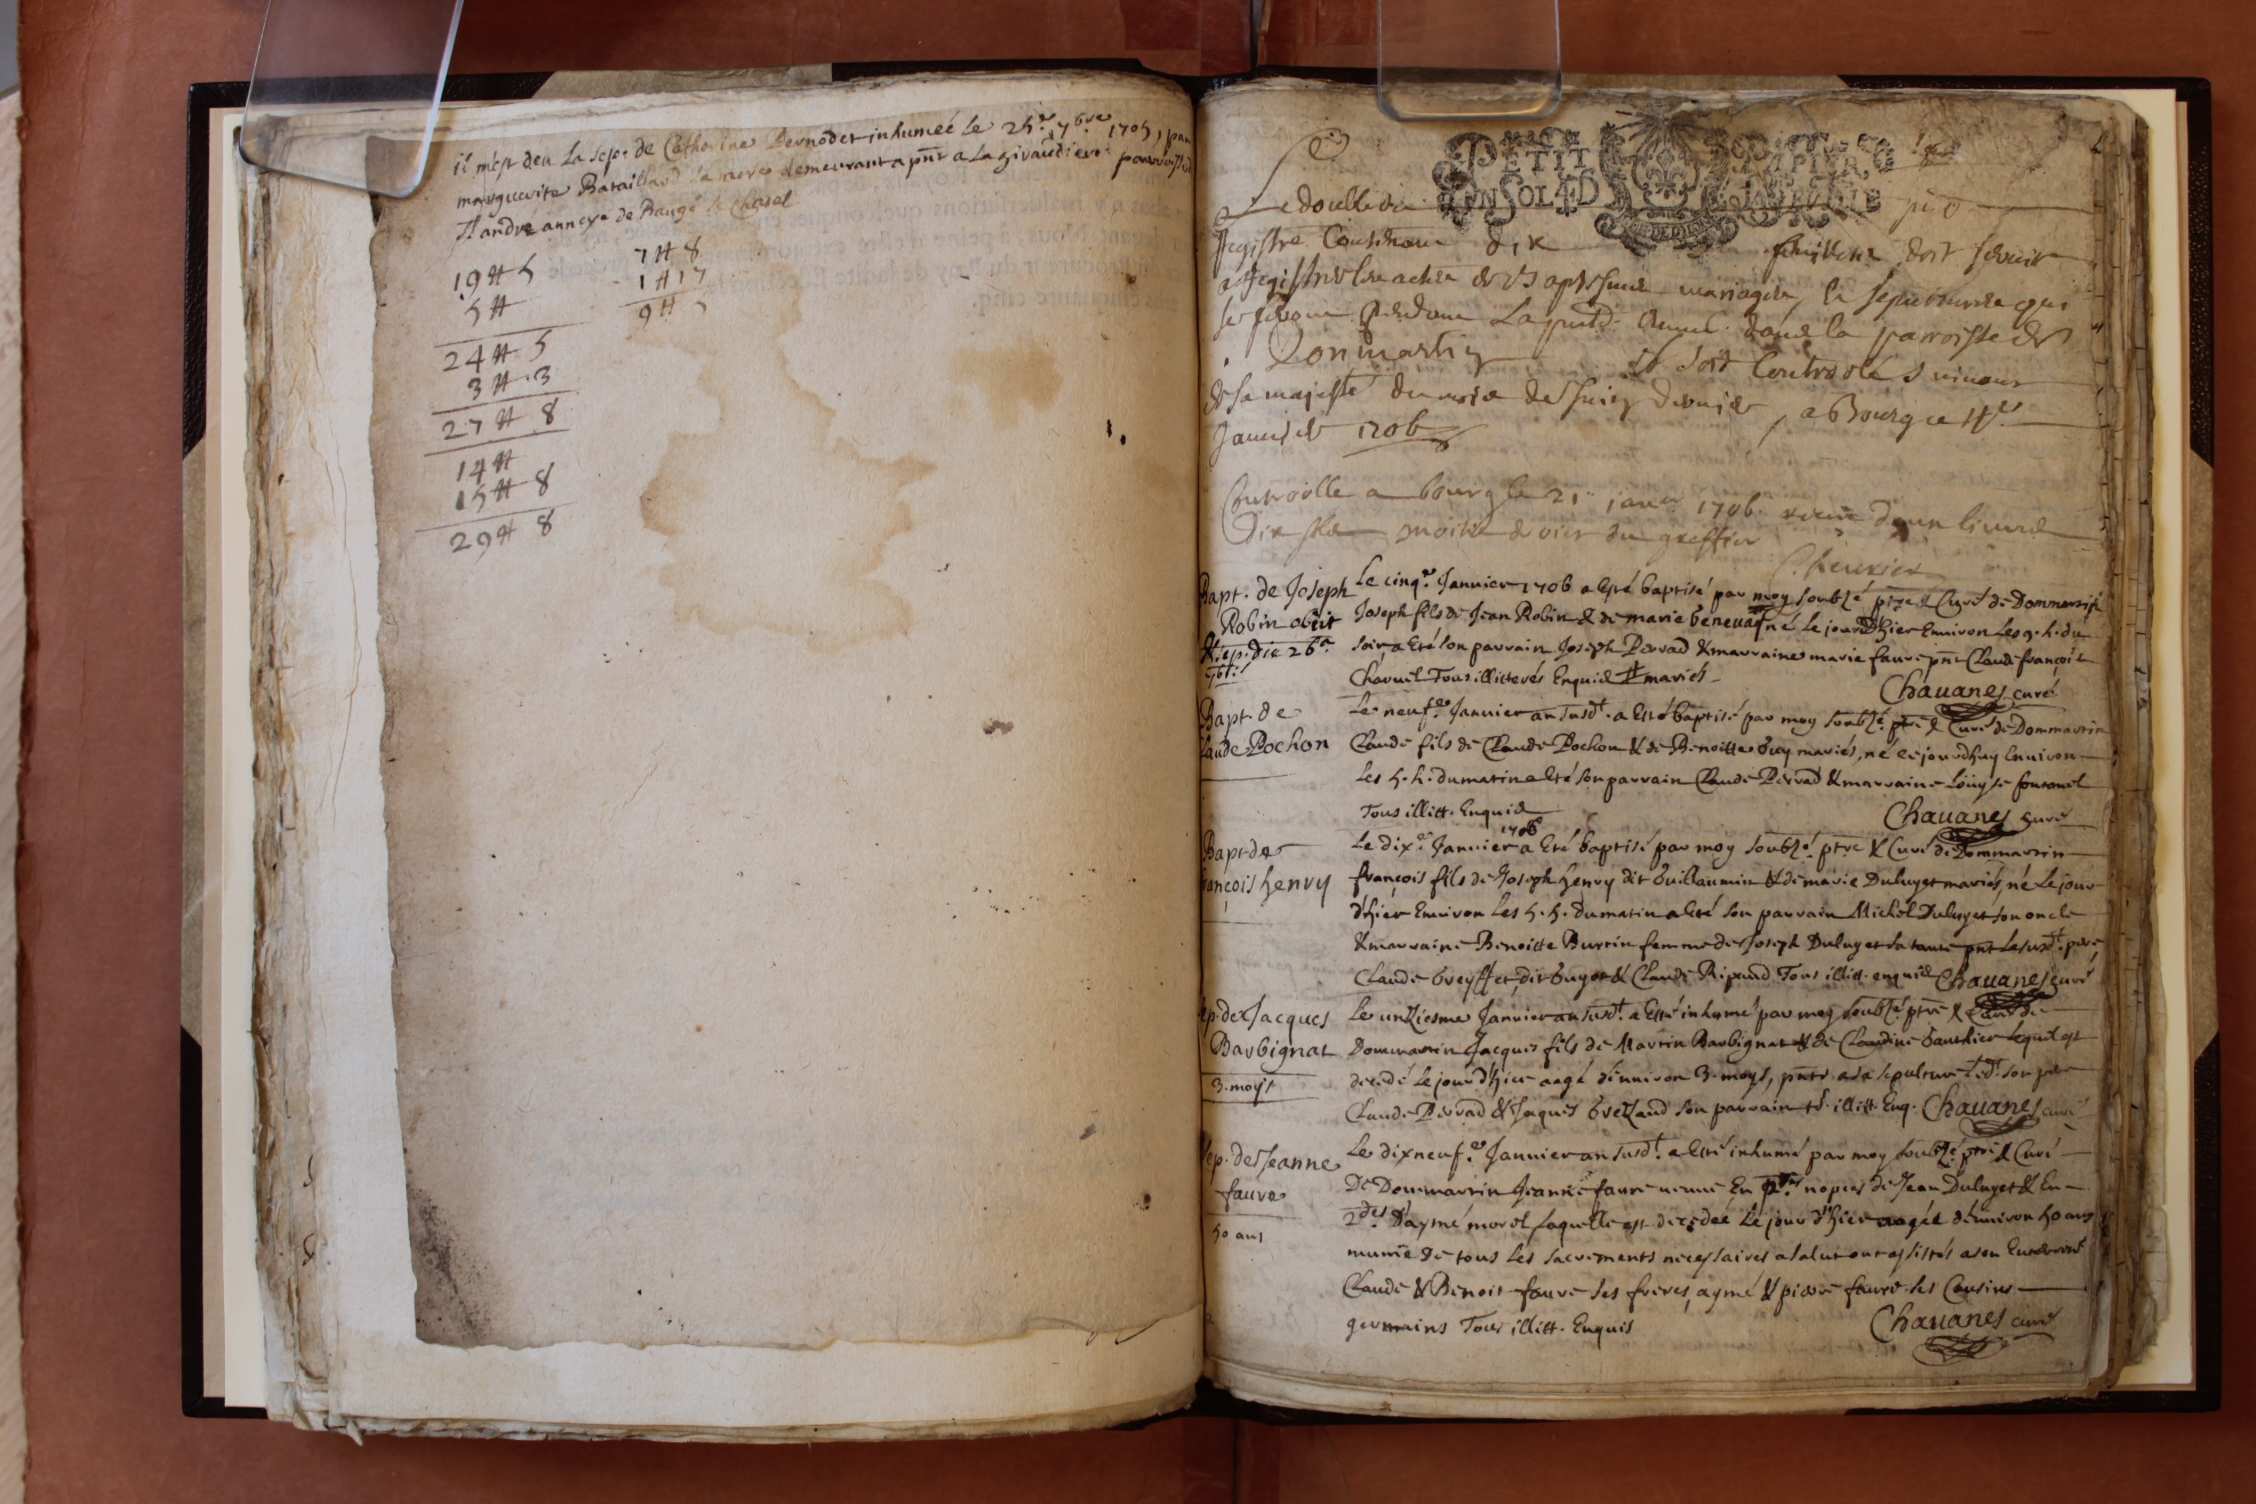 il m'est deu la sep. de Catherine Pernodet inhumeé le 25.e 7bre 1705, par
marguerite Bataillard sa mere demeurant a pnt a la givaudiere parroisse
St andré annexe de Baugé le Chatel
19 ₶ 5
5 ₶
24 ₶ 5
3 ₶ 3
27 ₶ 8
14 ₶
15 ₶ 8
29 ₶ 8
7 ₶ 8
1 ₶ 17
9 ₶ 5
PETIT PAPIER
Le double du
Registre Contenant dix feuillets doit servir
a Registrer les actes de Baptesmes mariages, et sepultures qui
se feront pendant la pnte année dans la parroisse de
Donmartin Et soit Controolé suivant
de sa majesté du mois de Juin dernier, a Bourg ce
Janvier 1706
Controolle a bourg le 21 janer 1706 receu d'un livre
Dix sols moitié du greffier
Bapt. de Joseph
Robin obiit
& sep. die 26.a
Le cinq.e Janvier 1706 a esté baptisé par moy soubzé ptre & Curé de Dommartin
Joseph fils de Jean Robin & de marie benevat né le jour d'hier Environ les 9. h. du
soir, a Eté son parrain Joseph Perrad & marraine marie faure pnt Claude françois
Charvet Tous illitterés Enquis ## mariés
Chauanes curé
Bapt. de
Claude Pochon
Le neuf.e Janvier an susd.t a Esté baptisé par moy soubzé ptre & Curé de Dommartin
Claude fils de Claude Pochon & de Benoitte Guy mariés, né ce jourdhuy Environ
les 5. h. du matin a Eté son parrain Claude Perrad & marraine Loüyse
Tous illitt. Enquis
Chauanes curé
Bapt. de
françois henry
Le dix.e Janvier 1706 a Eté baptisé par moy soubzé ptre & Curé de Dommartin
françois fils de Joseph henry dit Guillaumin & de marie Duluyet mariés, né le jour
d'hier Environ les 5. h. du matin a Eté son parrain Michel Duluyet son oncle
& marraine Benoitte Burtin femme de Joseph Duluyet sa tante pnt le susd.t pere
Claude Greyffet, dit Guyot & Claude Tous illitt. enquis Chauanes curé
Sep. de Jacques
Barbignat
3. moys
Le unziesme Janvier an susd.t a Esté inhumé par moy soubzé ptre & Curé de
Dommartin Jacques fils de Martin Barbignat & de Claudine Gauthier lequel est
decedé le jour d'hier aagé d'environ 3. moys, pnts a sa sepulture led.t son pere
Claude Perrad & Jaques Grezaud son parrain ts. illitt. Enq. Chauanes curé
Sep. de Jeanne
faure
50 ans
Le dixneuf.e Janvier an susd.t a Esté inhumé par moy soubzé ptre & Curé
De Dommartin Jeanne faure veuve En p.res nopces de Jean Duluyet & En
2.des D'aymé morel laquelle est decedeé le jour d'hier aagée d'environ 50 ans
munie de tous les sacrements necessaires a salut ont assistés a son Enterremt
Claude & Benoit faure ses freres, aymé & pierre faure ses Cousins
germains Tous illitt. Enquis
Chauanes curé